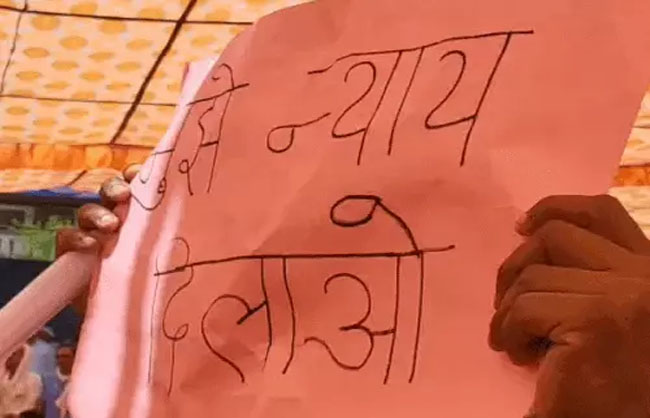 मुझे न्याय
दिलाओ